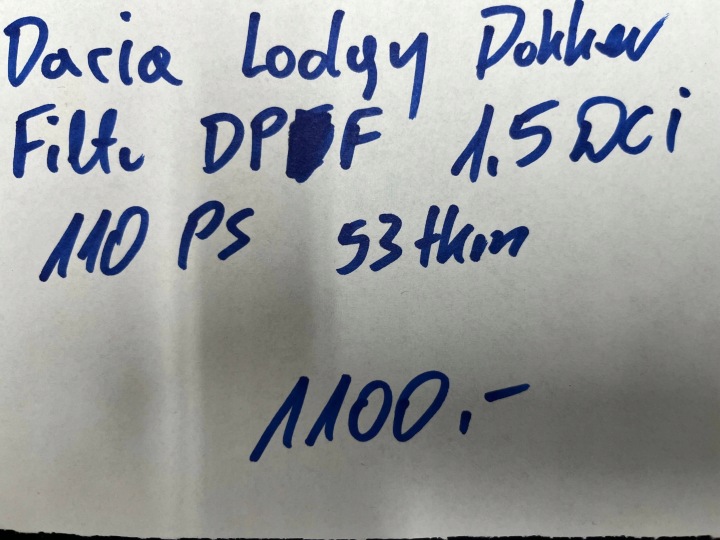 Dacia Lodgy Dokker
Filter DPF 1.5 DCi
110 PS 53 tkm
1100,-